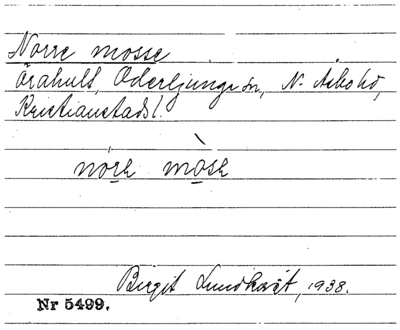 Norre mosse
Örahult, Oderljunga sn, N. Åsbo hd,
Kristianstads l.
nòrɛ mòsɛ
Birgit Lundkvist, 1938.
Nr 5499.